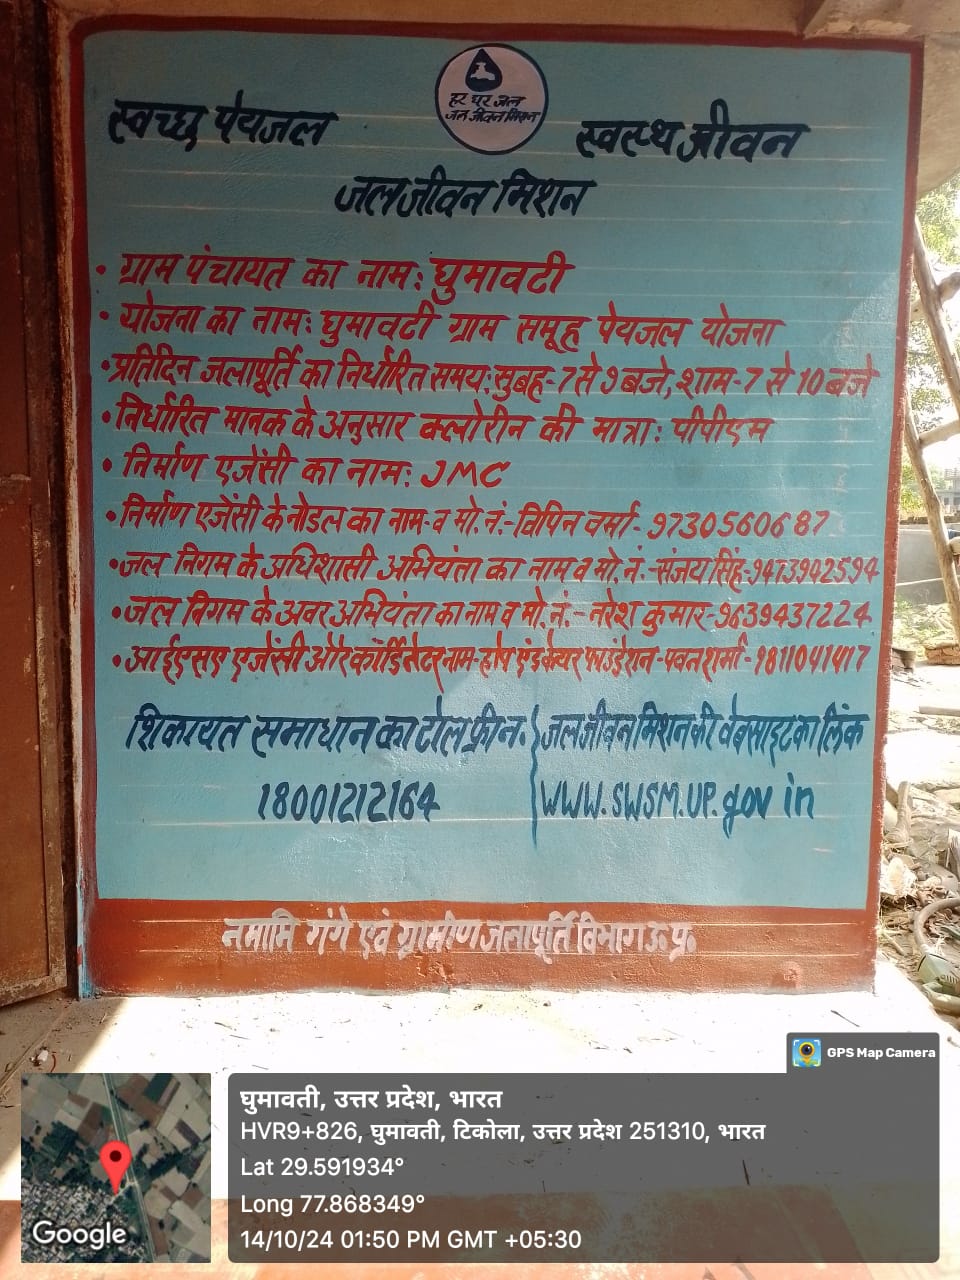 हर घर जल
जल जीवन मिशन
स्वच्छ पेयजल
स्वस्थ जीवन
जल जीवन मिशन
• ग्राम पंचायत का नाम: घुमावटी
• योजना का नाम: घुमावटी ग्राम समूह पेयजल योजना
• प्रतिदिन जलापूर्ति का निर्धारित समय: सुबह-7 से 9 बजे, शाम-7 से 10 बजे
• निर्धारित मानक के अनुसार क्लोरीन की मात्रा: पीपीएम
• निर्माण एजेंसी का नाम: JMC
• निर्माण एजेंसी के नोडल का नाम-व मो.नं.-विपिन वर्मा-9730560687
• जल निगम के अधिशासी अभियंता का नाम व मो.नं.-संजय सिंह-9473942594
• जल निगम के अवर अभियंता का नाम व मो.नं.-नरेश कुमार-9639437224
• आईएसए एजेंसी और कॉर्डिनेटर नाम-होप एंड केयर फाउंडेशन-पवन शर्मा-9811041417
शिकायत समाधान का टोल फ्री नं.
18001212164
जल जीवन मिशन की वेबसाइट का लिंक
WWW.SWSM.UP.gov in
नमामि गंगे एवं ग्रामीण जलापूर्ति विभाग उ.प्र.
GPS Map Camera
घुमावती, उत्तर प्रदेश, भारत
HVR9+826, घुमावती, टिकोला, उत्तर प्रदेश 251310, भारत
Lat 29.591934°
Long 77.868349°
14/10/24 01:50 PM GMT +05:30
Google